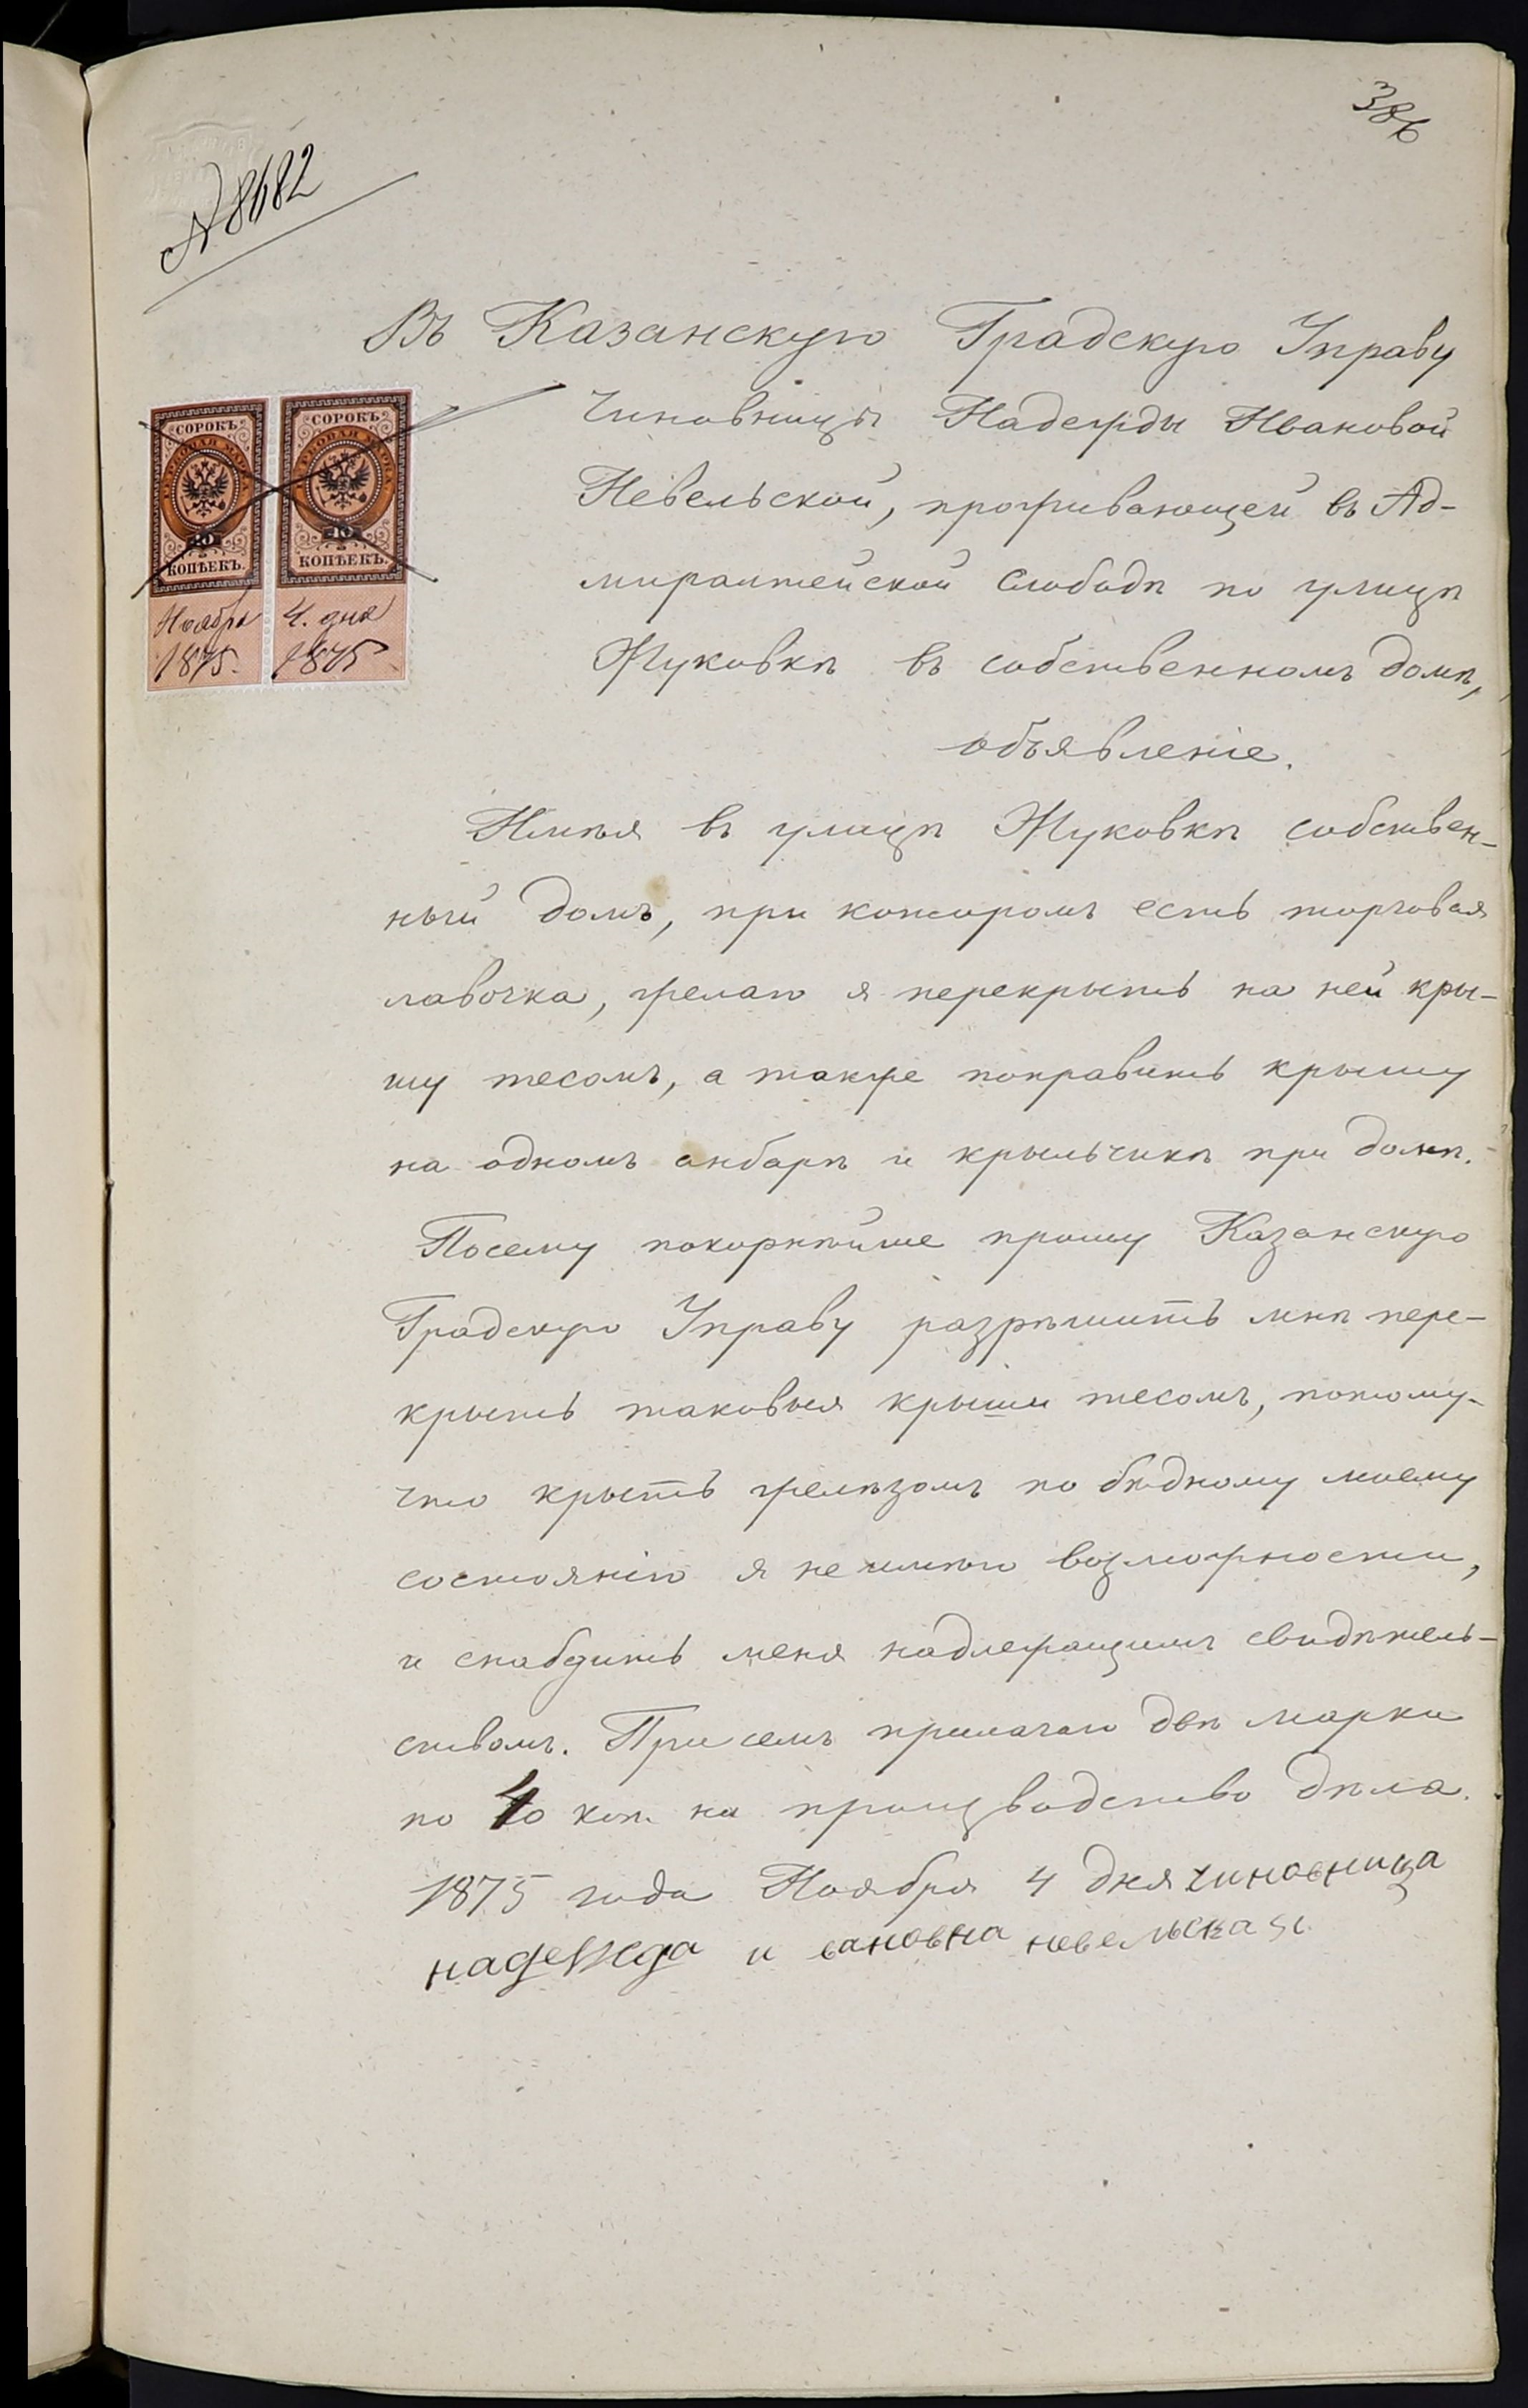 386
№ 8682
Въ Казанскую Градскую Управу
Чиновницы Надежды Ивановой
Невельской, проживающей въ Ад-
миралтейской Слободѣ по улицѣ
Жуковкѣ въ собственномъ домѣ,
объявленіе.
СОРОКЪ СОРОКЪ
ГЕРБОВАЯ МАРКА ГЕРБОВАЯ МАРКА
40 40
КОПѢЕКЪ. КОПѢЕКЪ.
Ноября 4. дня
1875. 1875
Имѣя въ улицѣ Жуковкѣ собствен-
ный домъ, при которомъ есть торговая
лавочка, желаю я перекрыть на ней кры-
шу тесомъ, а также поправить крышу
на одномъ анбарѣ и крыльчикѣ при домѣ.
Посему покорнѣйше прошу Казанскую
Градскую Управу разрѣшить мнѣ пере-
крыть таковыя крыши тесомъ, потому-
что крыть желѣзомъ по бѣдному моему
состоянію я не имѣю возможности,
и снабдить меня надлежащимъ свидѣтель-
ствомъ. При семъ прилагаю двѣ марки
по 40 коп. на производство дѣла.
1875 года Ноября 4 дня чиновница
надежда и вановна невельская